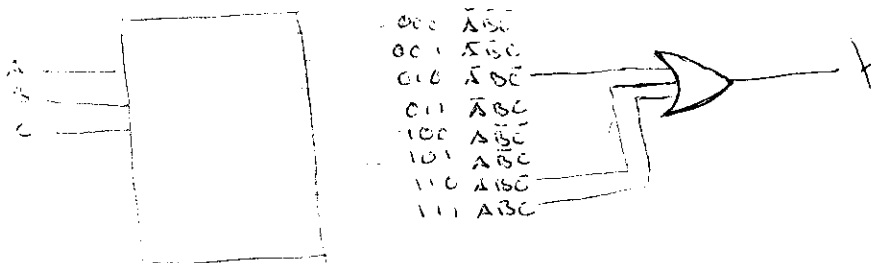 000 A̅B̅C̅
001 A̅B̅C
A 010 A̅BC̅
B 011 A̅BC
C 100 AB̅C̅
101 AB̅C
110 ABC̅
111 ABC